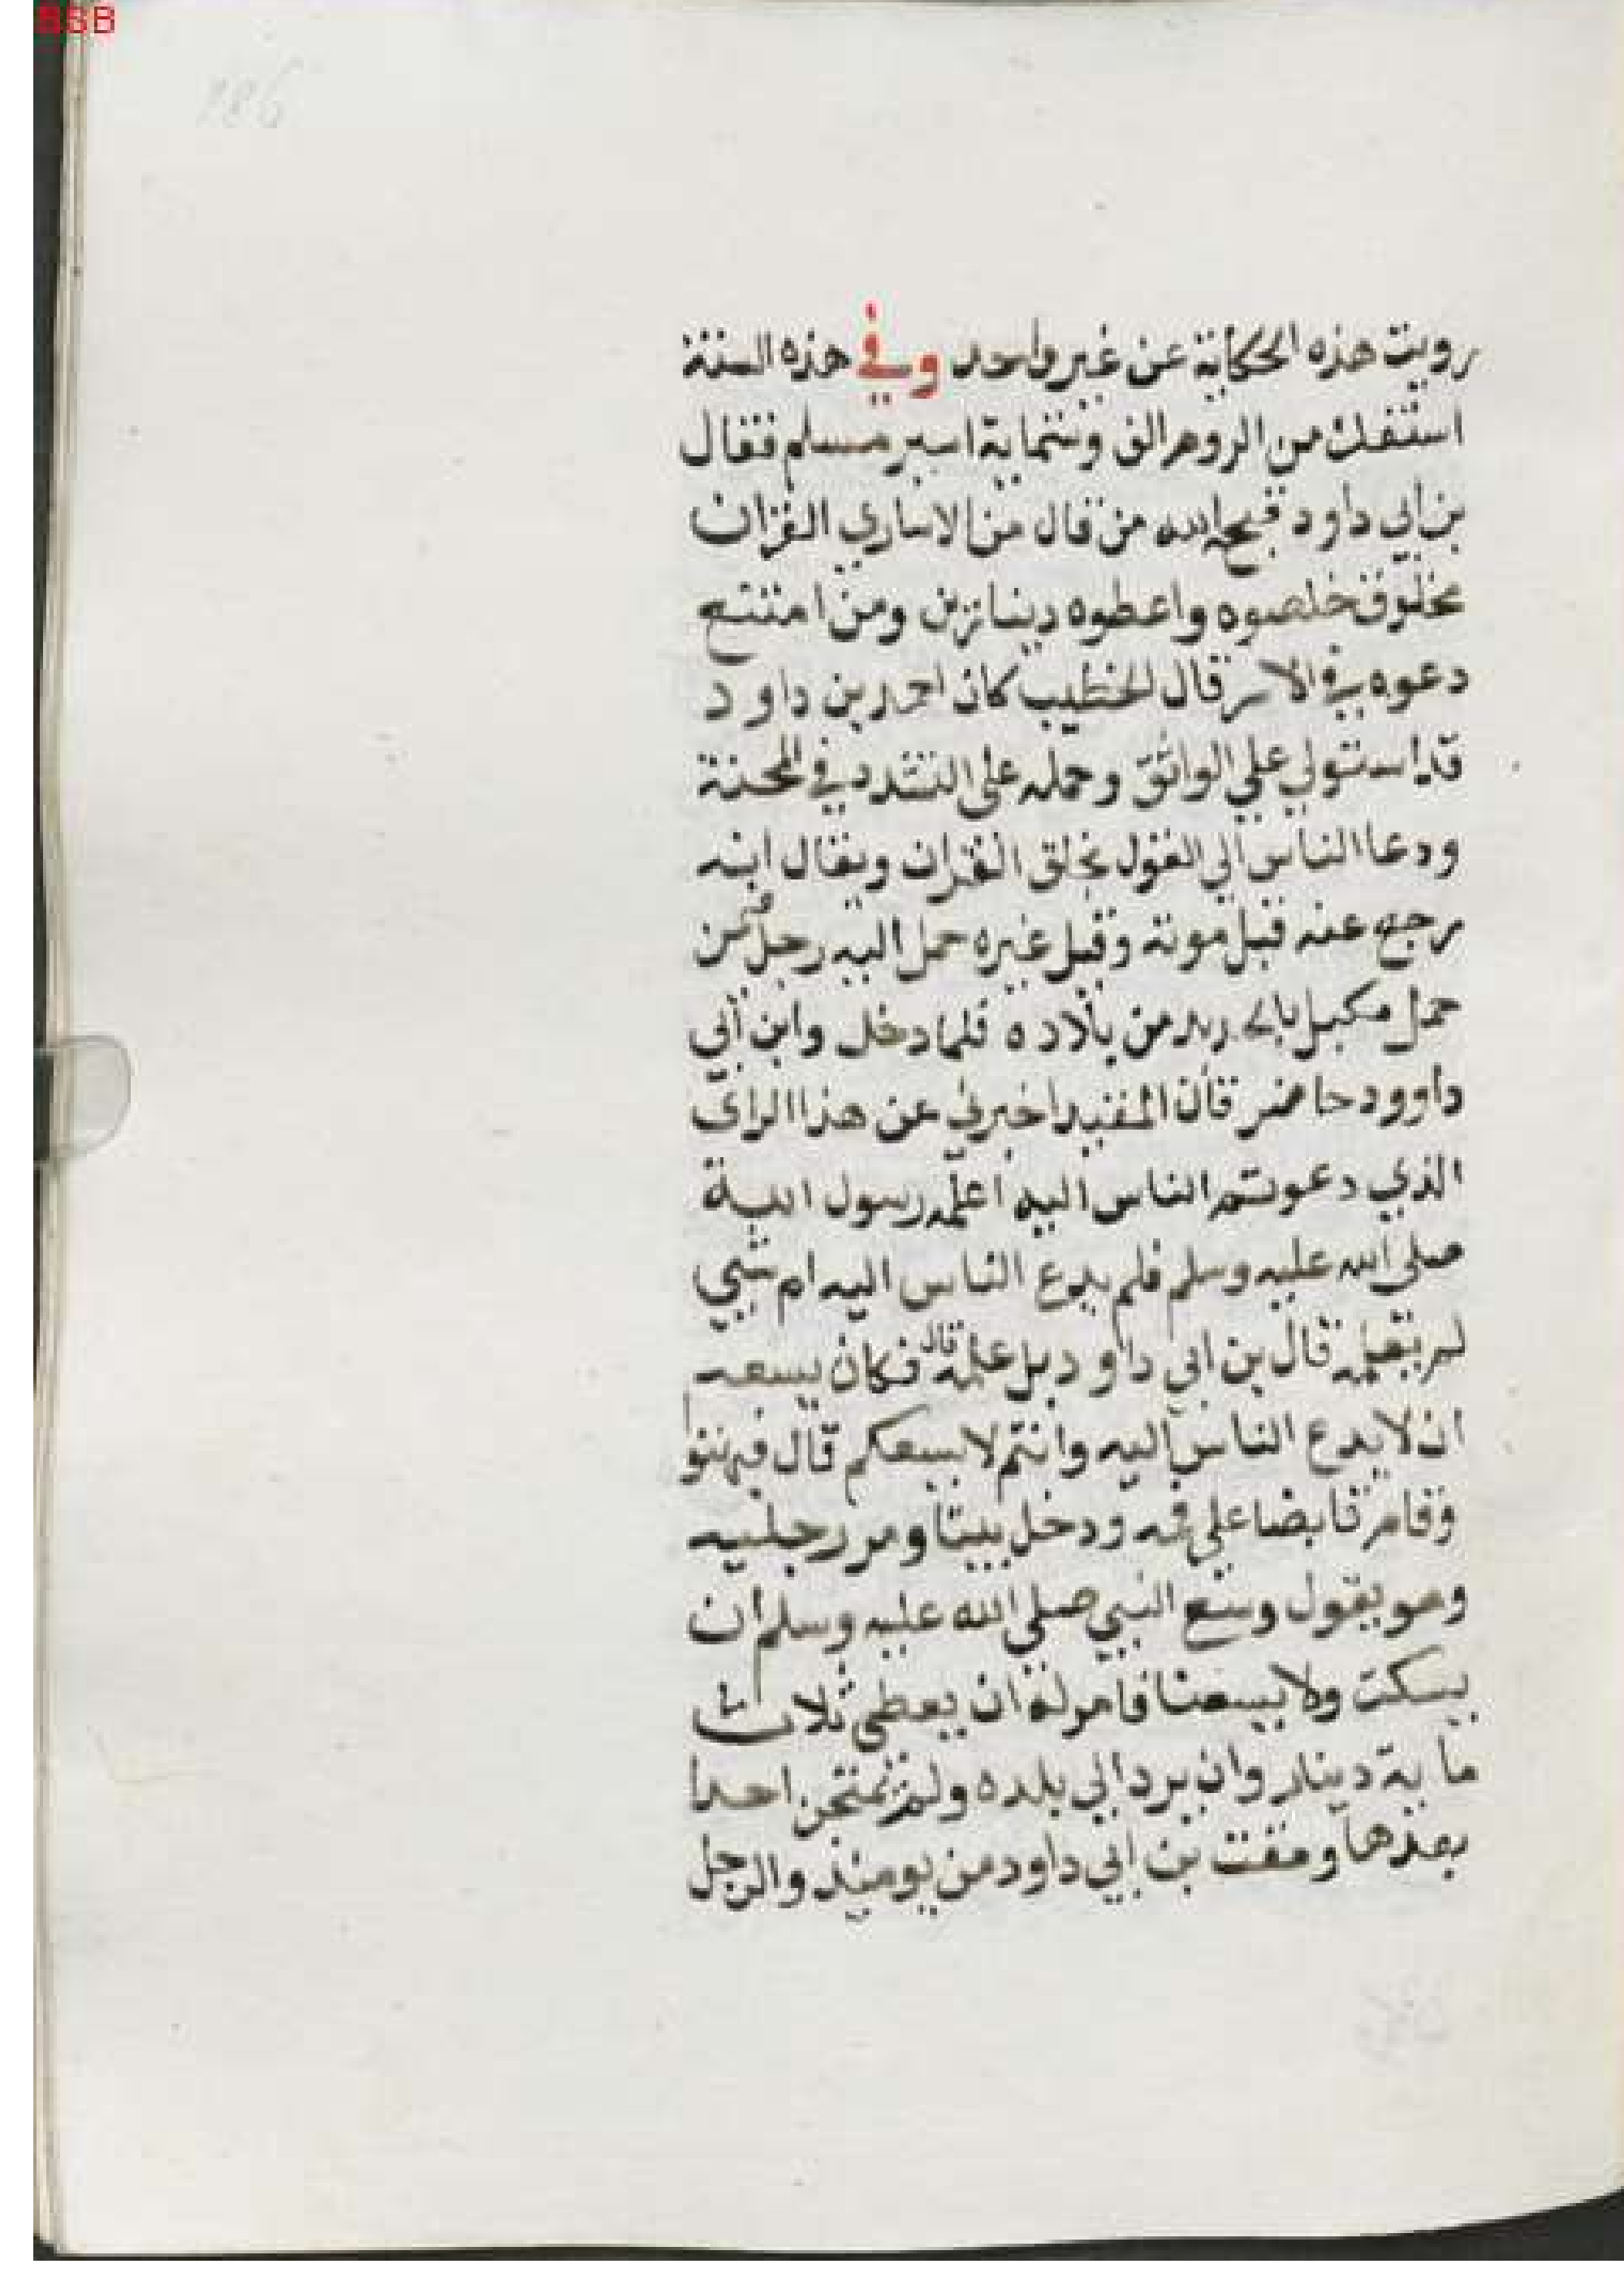 BSB
186
رويت هذه الحكاية عن غير واحد وفي هذه السنة
استفك من الروم الف وستماية اسير مسلم فقال
بن ابي داود قبحه الله من قال من الاساري القران
مخلوق خلصوه واعطوه دينارين ومن امتنع
دعوه في الاسر قال الخطيب كان احمد بن داود
قد استولي علي الواثق وحمله على التشدد في المحنة
ودعا الناس الي القول بخلق القران ويقال انه
رجع عنه قبل موته وقيل غيره حمل اليه رجل فمن
حمل مكبل بالحديد من بلاده فلما دخل وابن ابي
داوود حاضر قال المقيد اخبرني عن هذا الراى
الذي دعوتم الناس اليه اعلمه رسول الله
صلى الله عليه وسلم فلم يدع الناس اليه ام شي
لم يعلمه قال بن ابي داود بل علمه قال فكان يسعه
ان لا يدع الناس اليه وانتم لا يسعكم قال فبهتوا
وقام قابضا علي فمه ودخل بيتا ومد رجليه
وهو يقول وسع النبي صلى الله عليه وسلم ان
يسكت ولا يسعنا فامر له ان يعطى ثلاث
ماية دينار وان يرد الي بلده ولم يمتحن احدا
بعدها ومقت بن ابي داود من يوميذ والرجل